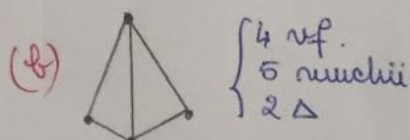 (b)
4 vf.
5 muchii
2 Δ